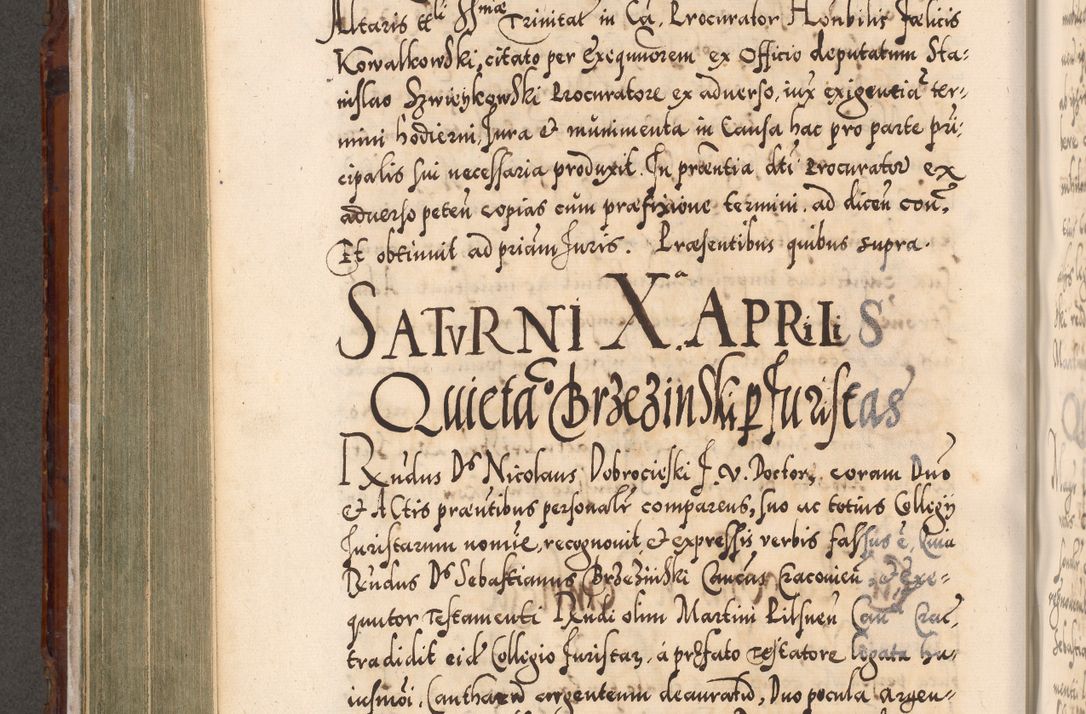 Altaris ttli SSmæ Trinitat in Ca. Procurator Honbilis Fælicis
Kowalkowski, citato per Exequutorem ex Officio deputatum Sta:
nislao Szwicykowski Procuratore ex aduerso, iux exigentiā ter=
mini hodierni, Iura & munimenta in Causa hac pro parte pri:
cipalis sui necessaria produxit. In præntia dti Procurator ex
aduerso peten copias cum præfixione termini ad dicen con,
Et obtinuit ad priam Iuris. Præsentibus quibus supra.
SATVRNI X.a APRILIS
Quietao Brzezinski per Iuristas
Rndus Ds Nicolaus Dobrocieski I. V. Doctor, coram Dno
& Actis præntibus personalr comparens, suo ac totius Collegij
Iuristarum nomine, recognouit, & expressis verbis fassus ē, Quia
Rndus Ds Sebastianus Brzezinski Canćas Cracouien, & Exe=
quutor Testamenti Rndi olim Martini Pilsnen Can Crac,
tradidit eid Collegio Iuristar, á præfato Testatore legata hu=
iusmoi, Cantharū argenteum deauratū, Duo pocula argen=